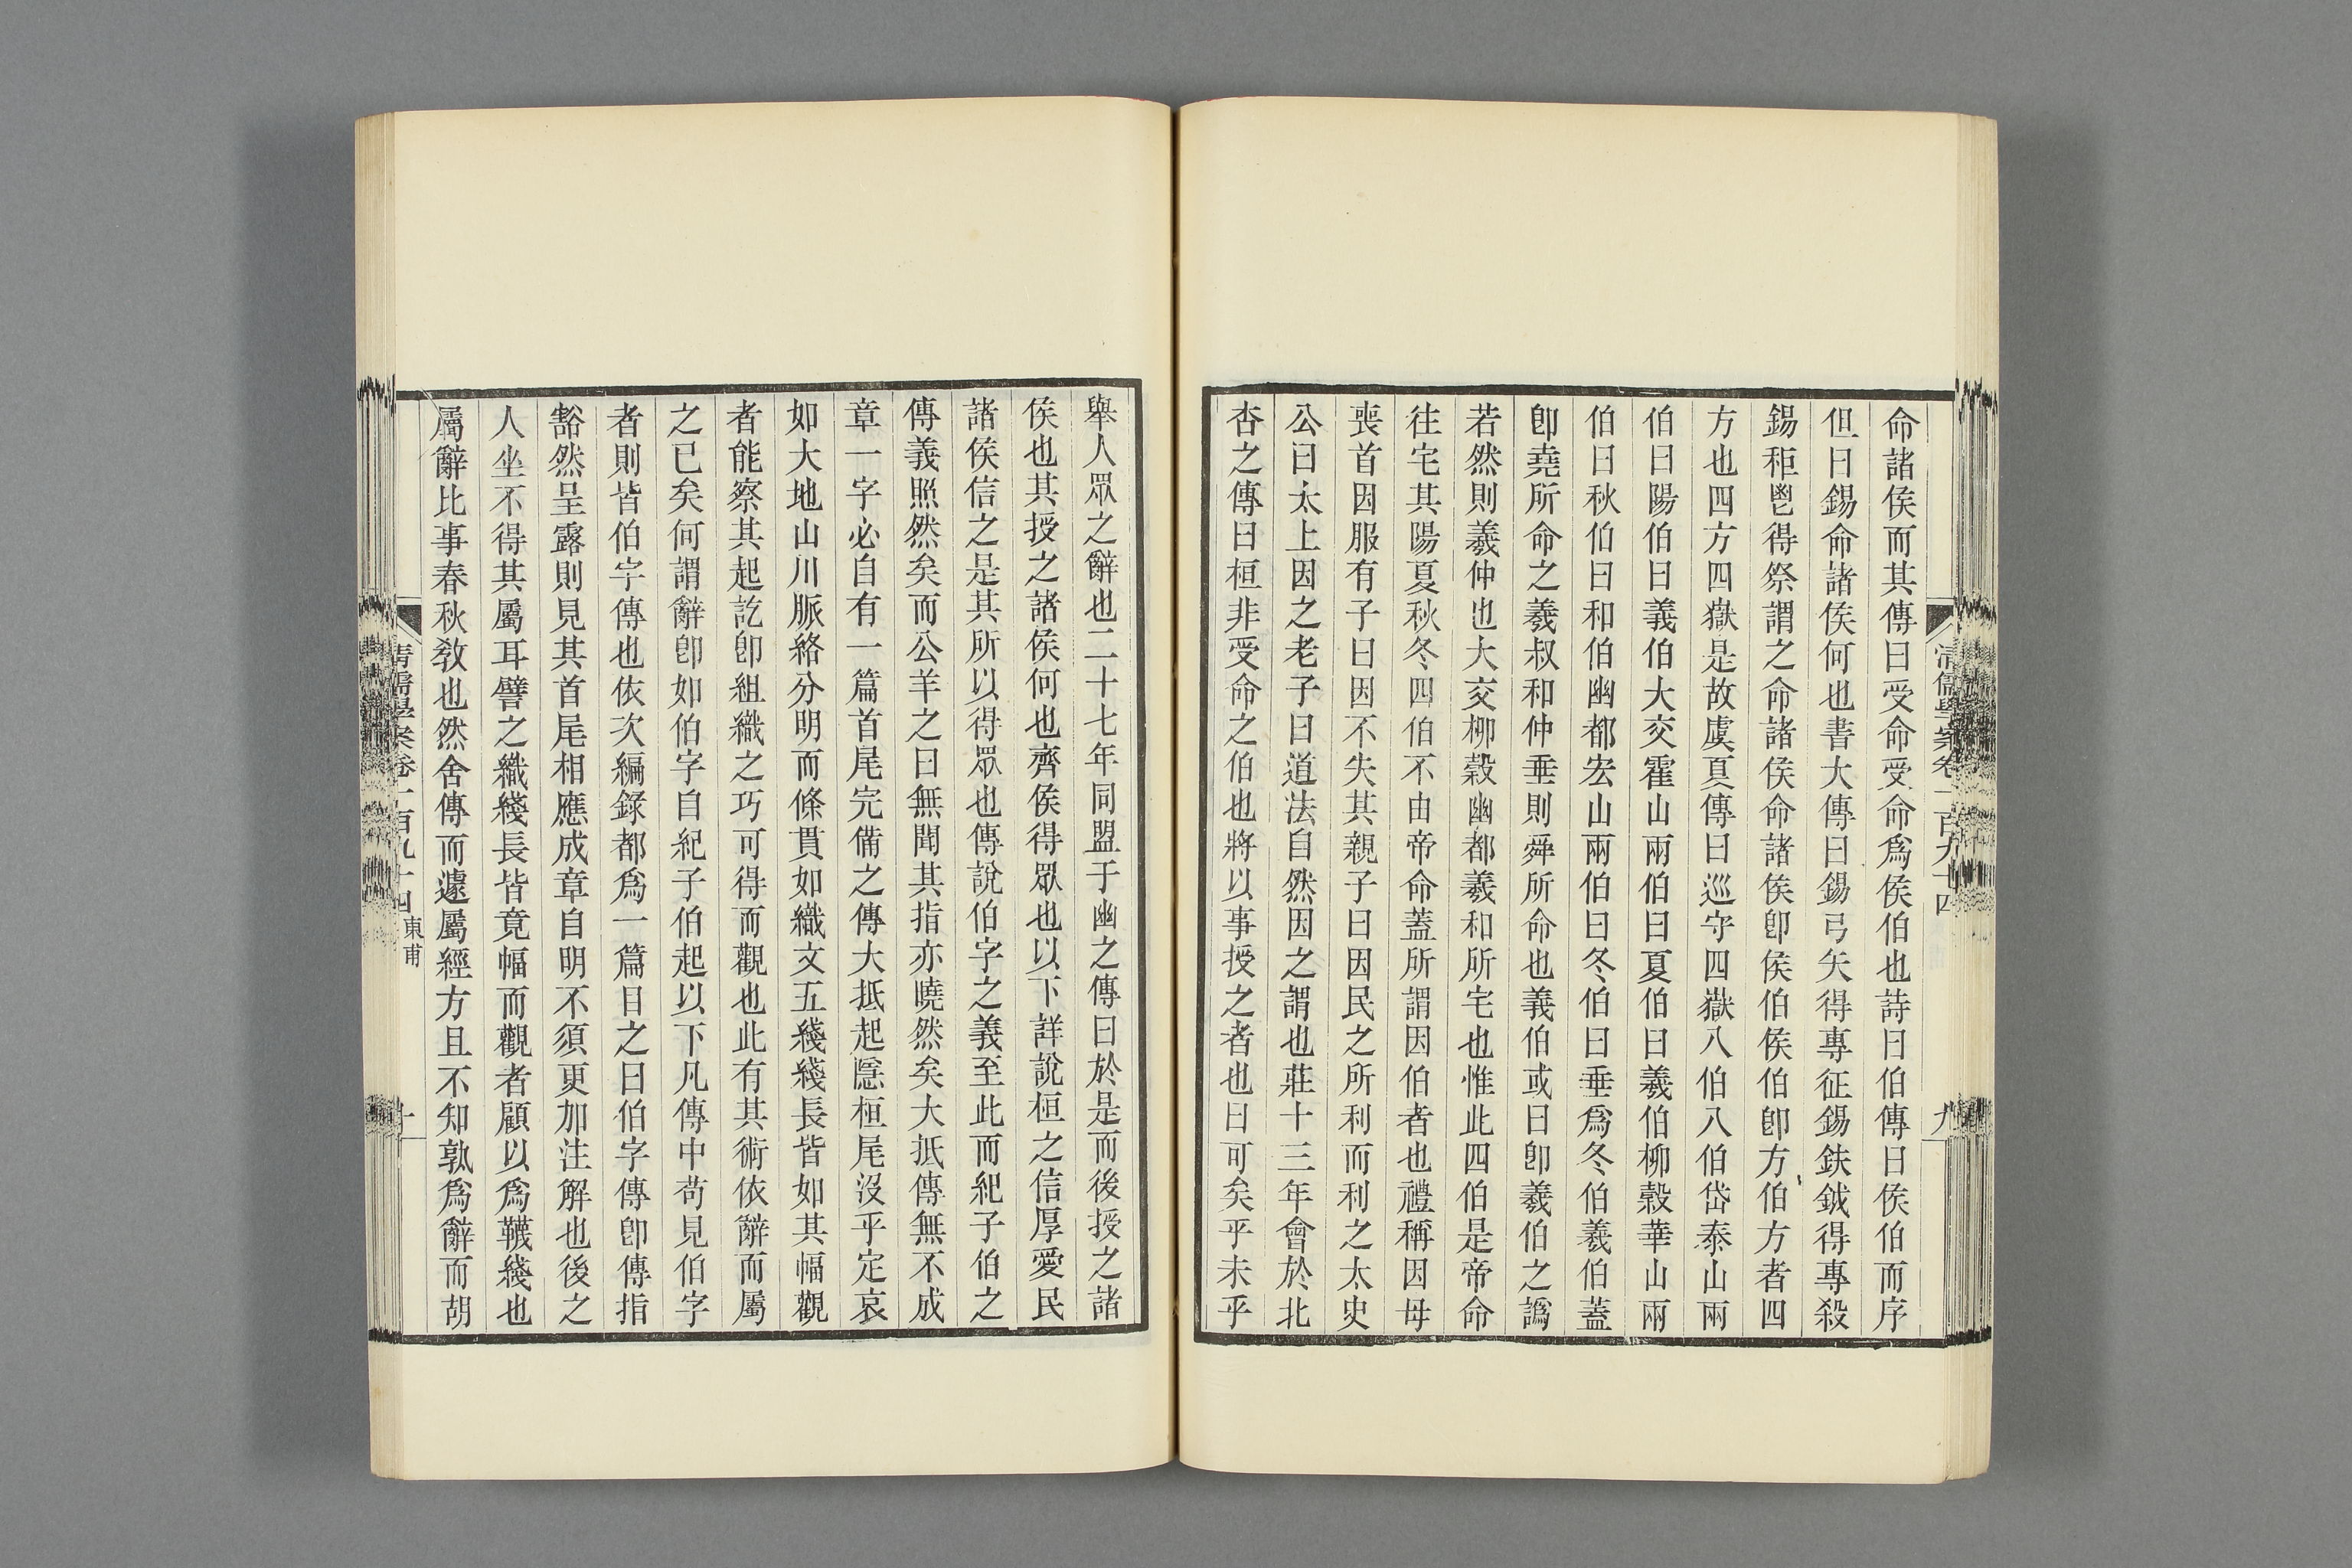 命諸侯而其傳曰受命受命爲侯伯也詩曰伯傳曰侯伯而序
但曰錫命諸侯何也書大傳曰錫弓矢得專征錫鈇鉞得專殺
錫秬鬯得祭謂之命諸侯命諸侯卽侯伯侯伯卽方伯方者四
方也四方四嶽是故虞夏傳曰巡守四嶽八伯八伯岱泰山兩
伯曰陽伯曰義伯大交霍山兩伯曰夏伯曰羲伯柳穀華山兩
伯曰秋伯曰和伯幽都宏山兩伯曰冬伯曰垂爲冬伯羲伯蓋
卽堯所命之羲叔和仲垂則舜所命也義伯或曰卽羲伯之譌
若然則羲仲也大交柳穀幽都羲和所宅也惟此四伯是帝命
往宅其陽夏秋冬四伯不由帝命蓋所謂因伯者也禮稱因母
喪首因服有子曰因不失其親子曰因民之所利而利之太史
公曰太上因之老子曰道法自然因之謂也莊十三年會於北
杏之傳曰桓非受命之伯也將以事授之者也曰可矣乎未乎
清儒學案卷一百九十四
九
舉人眾之辭也二十七年同盟于幽之傳曰於是而後授之諸
侯也其授之諸侯何也齊侯得眾也以下詳說桓之信厚愛民
諸侯信之是其所以得眾也傳說伯字之義至此而紀子伯之
傳義照然矣而公羊之曰無聞其指亦曉然矣大抵傳無不成
章一字必自有一篇首尾完備之傳大抵起隱桓尾沒乎定哀
如大地山川脈絡分明而條貫如織文五綫綫長皆如其幅觀
者能察其起訖卽組織之巧可得而觀也此有其術依辭而屬
之已矣何謂辭卽如伯字自紀子伯起以下凡傳中苟見伯字
者則皆伯字傳也依次編錄都爲一篇目之曰伯字傳卽傳指
豁然呈露則見其首尾相應成章自明不須更加注解也後之
人坐不得其屬耳譬之織綫長皆竟幅而觀者顧以爲韈綫也
屬辭比事春秋敎也然舍傳而遽屬經方且不知孰爲辭而胡
清儒學案卷一百九十四 東甫
十